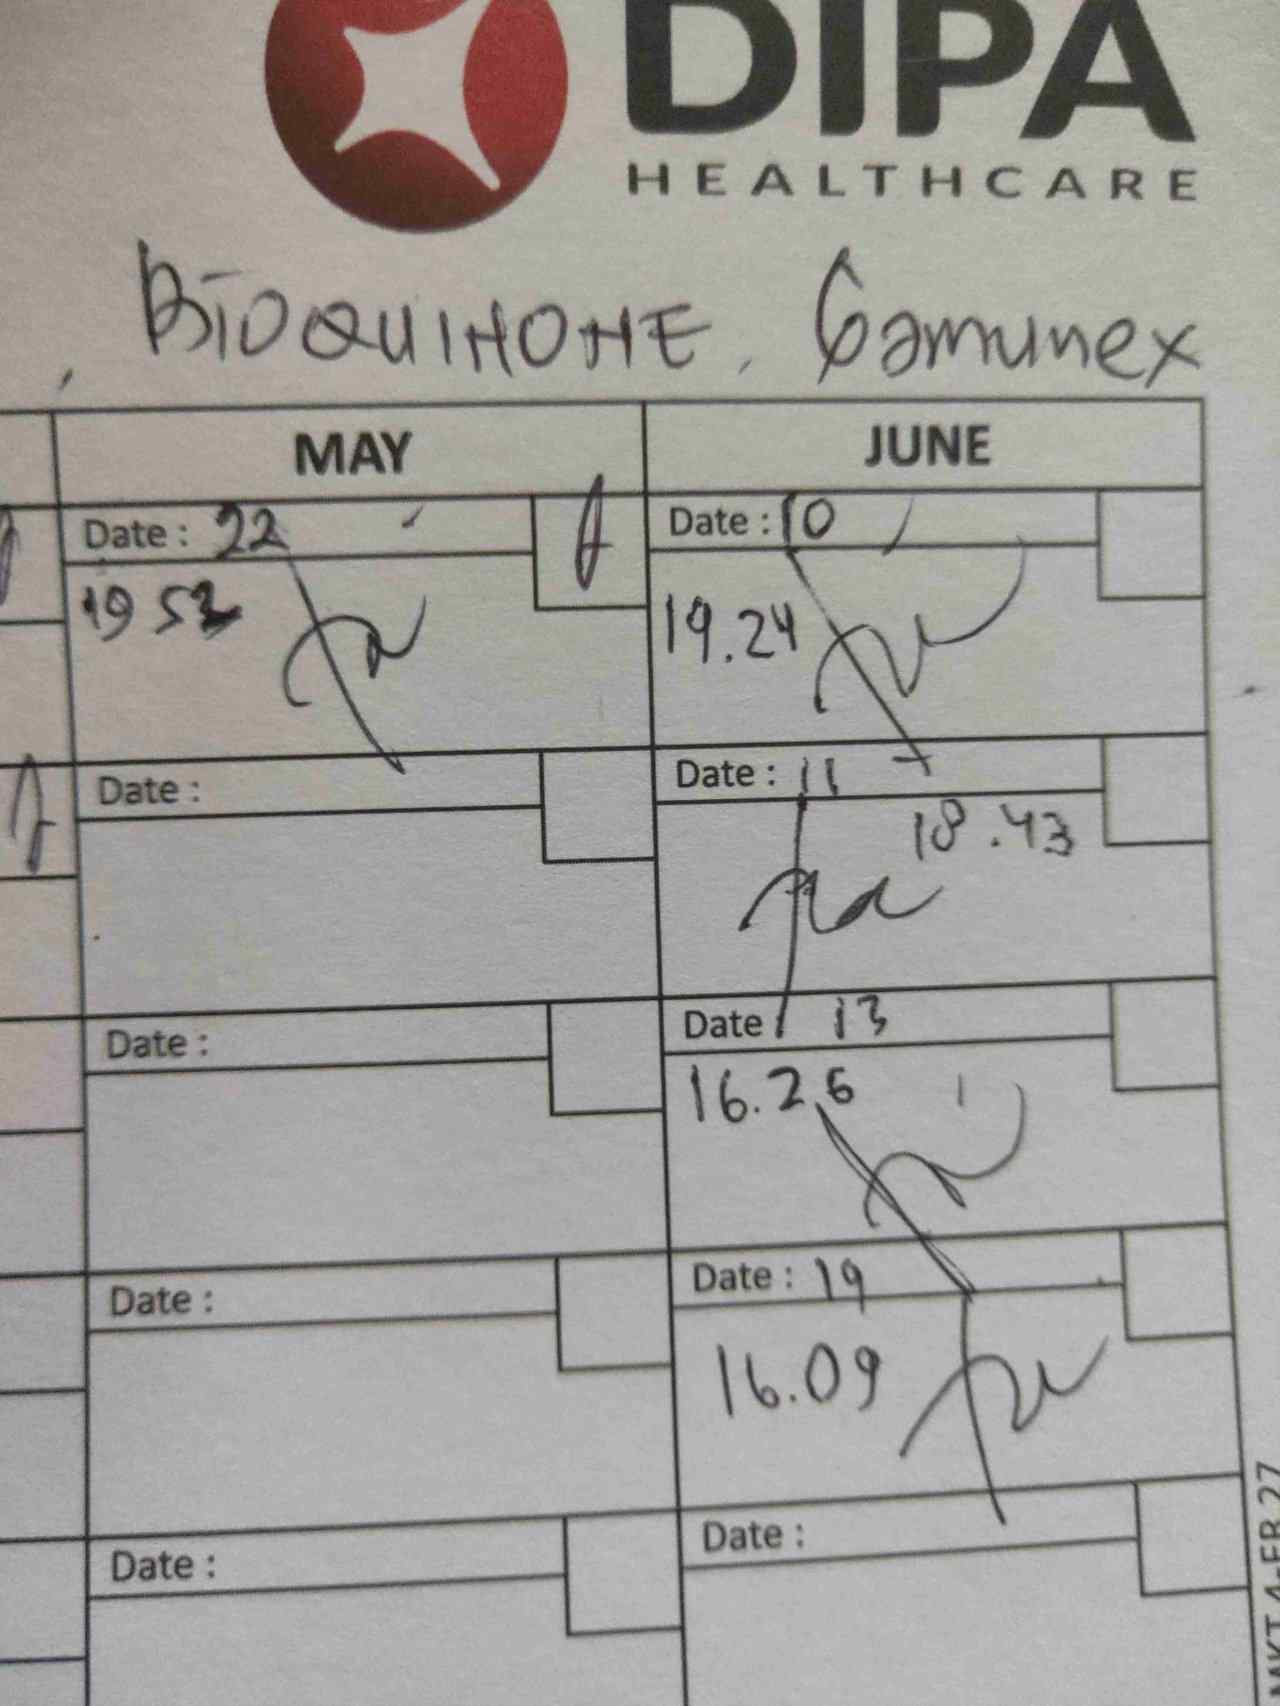 DIPA
HEALTHCARE
, BIOQUINONE, Gamunex
MAY JUNE
Date : 22 Date : 10
19 52 19.24
Date : Date : 11
18.43
Date : Date : 13
16.26
Date : Date : 19
16.09
Date : Date :
MKT 4-FR 27